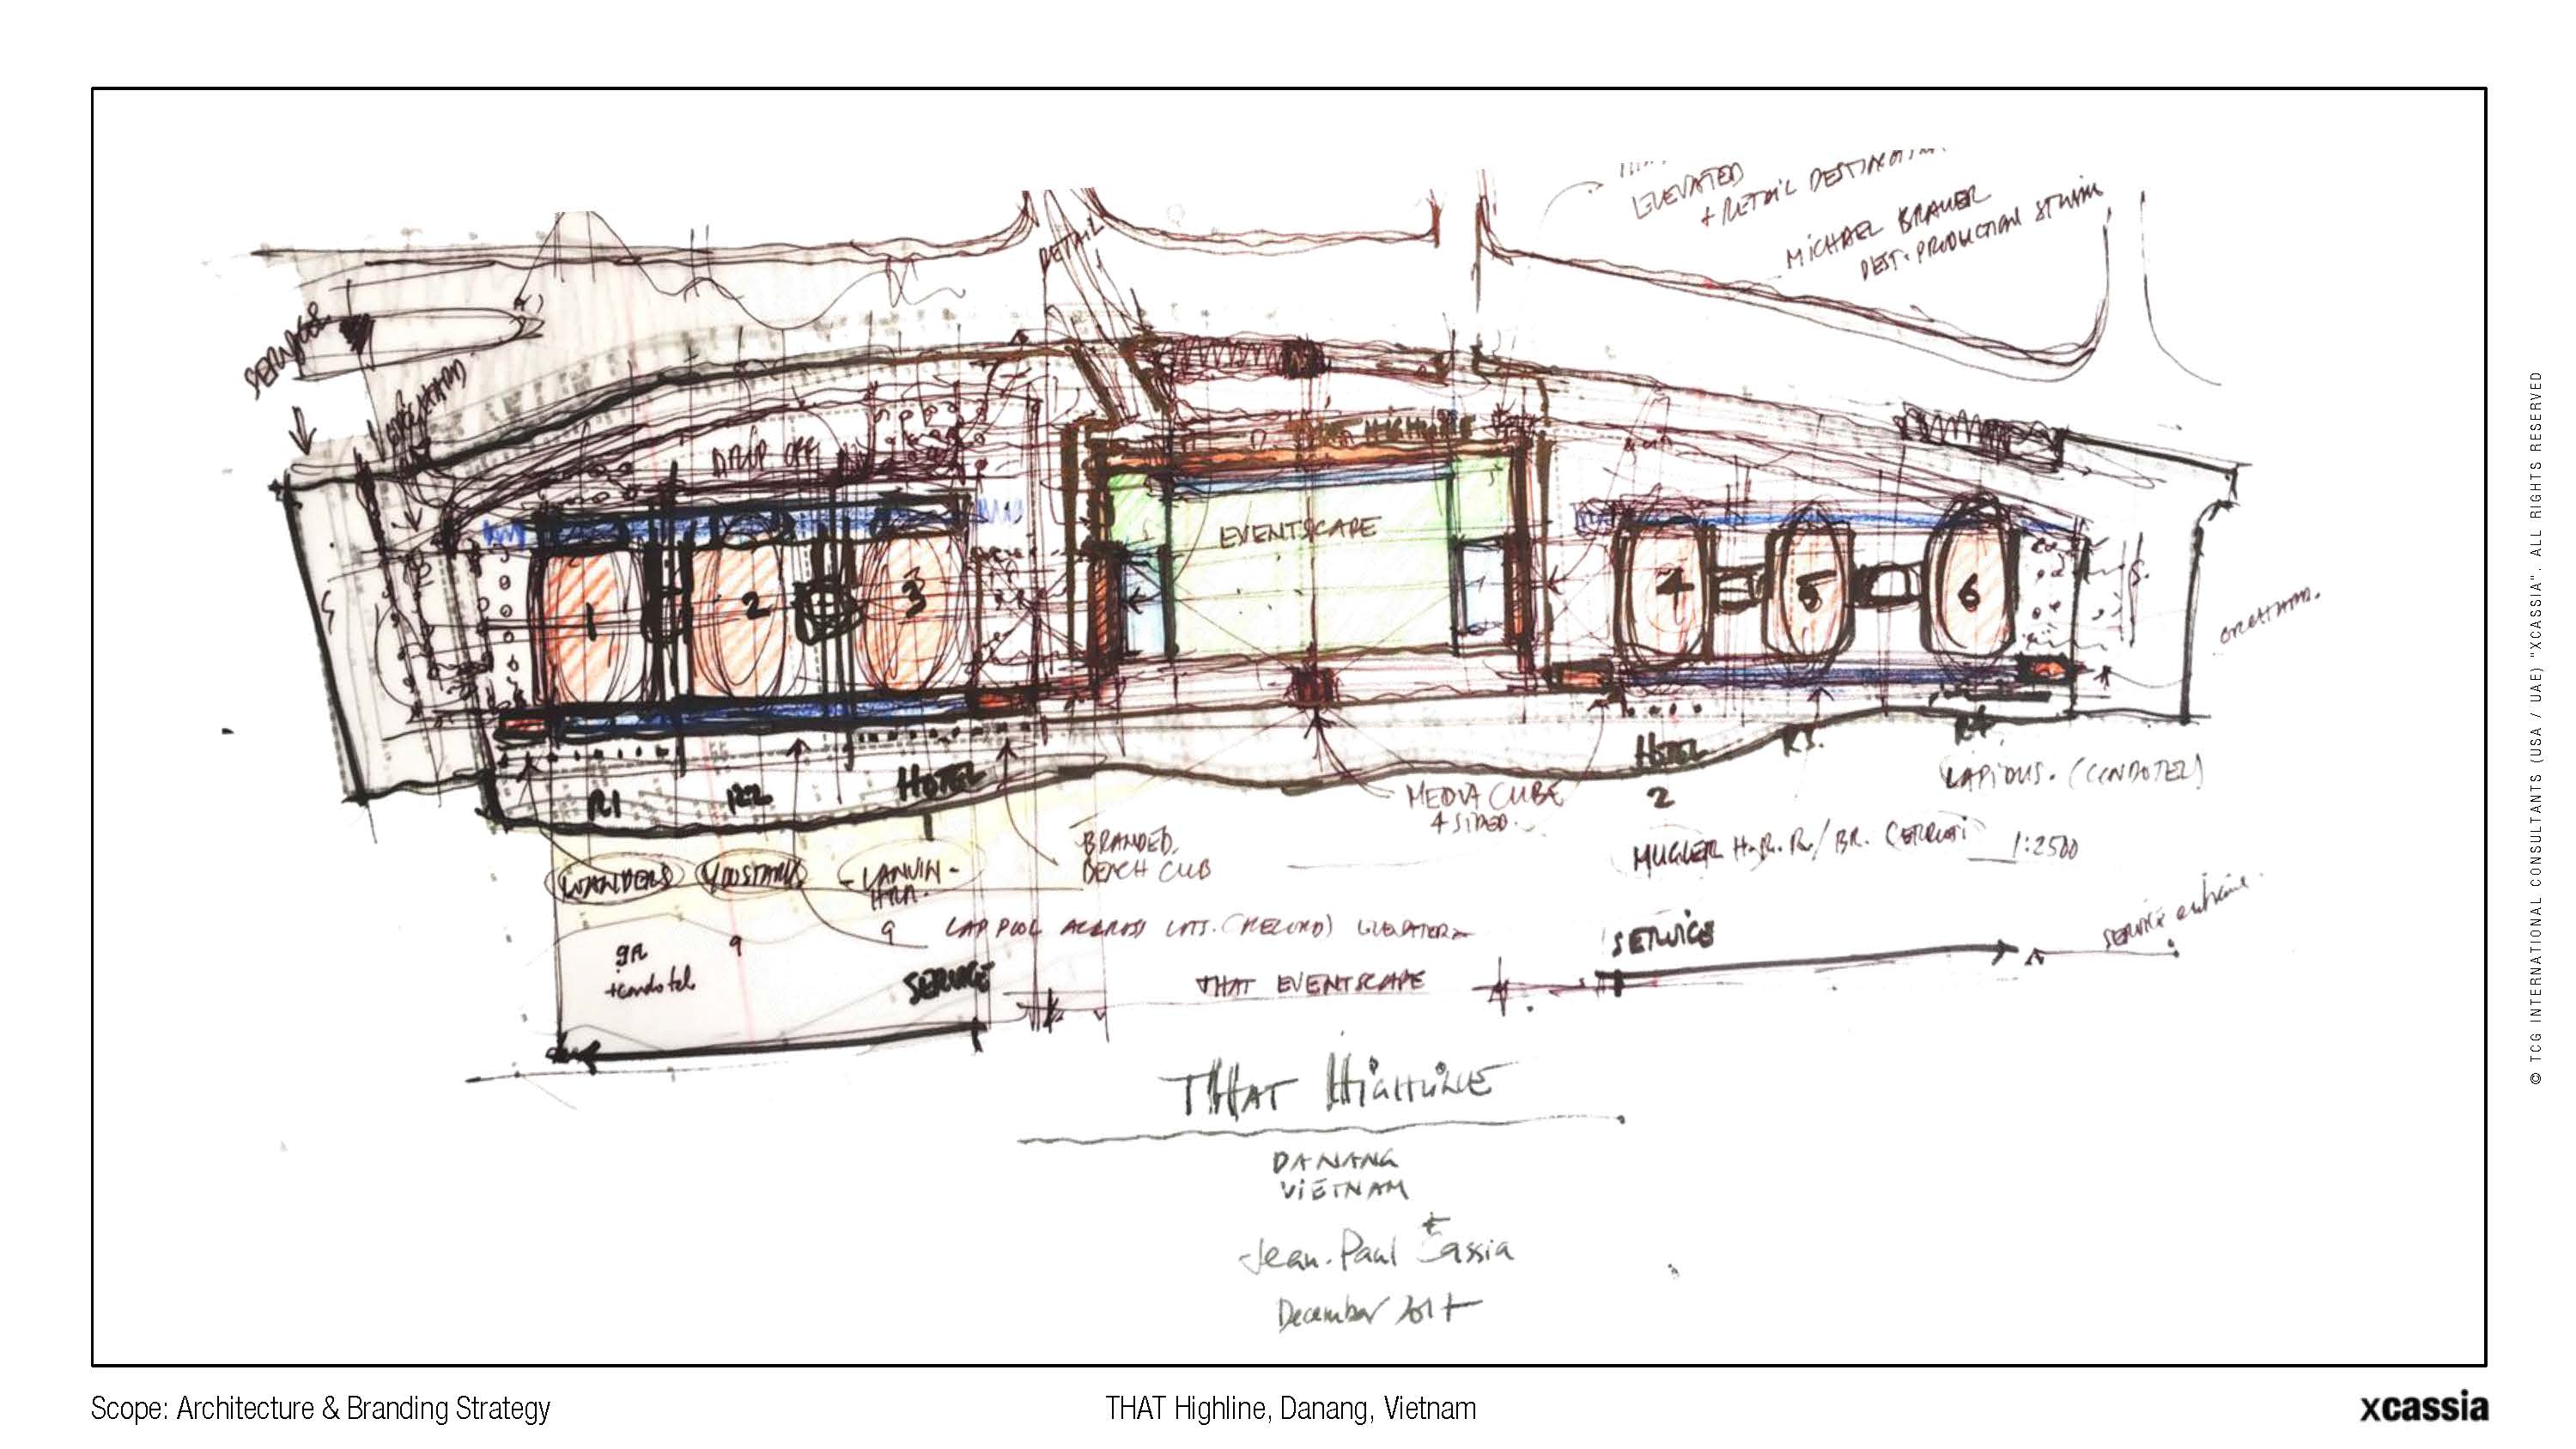 ELEVATED
+ RETAIL DESTINATION
MICHAEL BRAUER
DEST. PRODUCTION
DETAIL
DROP OFF
EVENTSCAPE
1
2
3
4
5
6
R1
R2
HOTEL
1
HOTEL
2
R3.
R4
(CONDOTEL)
MEDIA CUBE
4 SIDED.
BRANDED.
BEACH CLUB
WANDERS
YOOSTARCK
-LANVIN-
MUGLER H.R. / BR. CERRUTI 1:2500
LAP POOL ACROSS LOTS. (RECORD)
+condotel
SERVICE
THAT EVENTSCAPE
SERVICE
SERVICE entrance.
THAT HIGHLINE
DANANG
VIETNAM
Jean-Paul Cassia
December 2017
Scope: Architecture & Branding Strategy
THAT Highline, Danang, Vietnam
xcassia
© TCG INTERNATIONAL CONSULTANTS (USA / UAE) "XCASSIA". ALL RIGHTS RESERVED